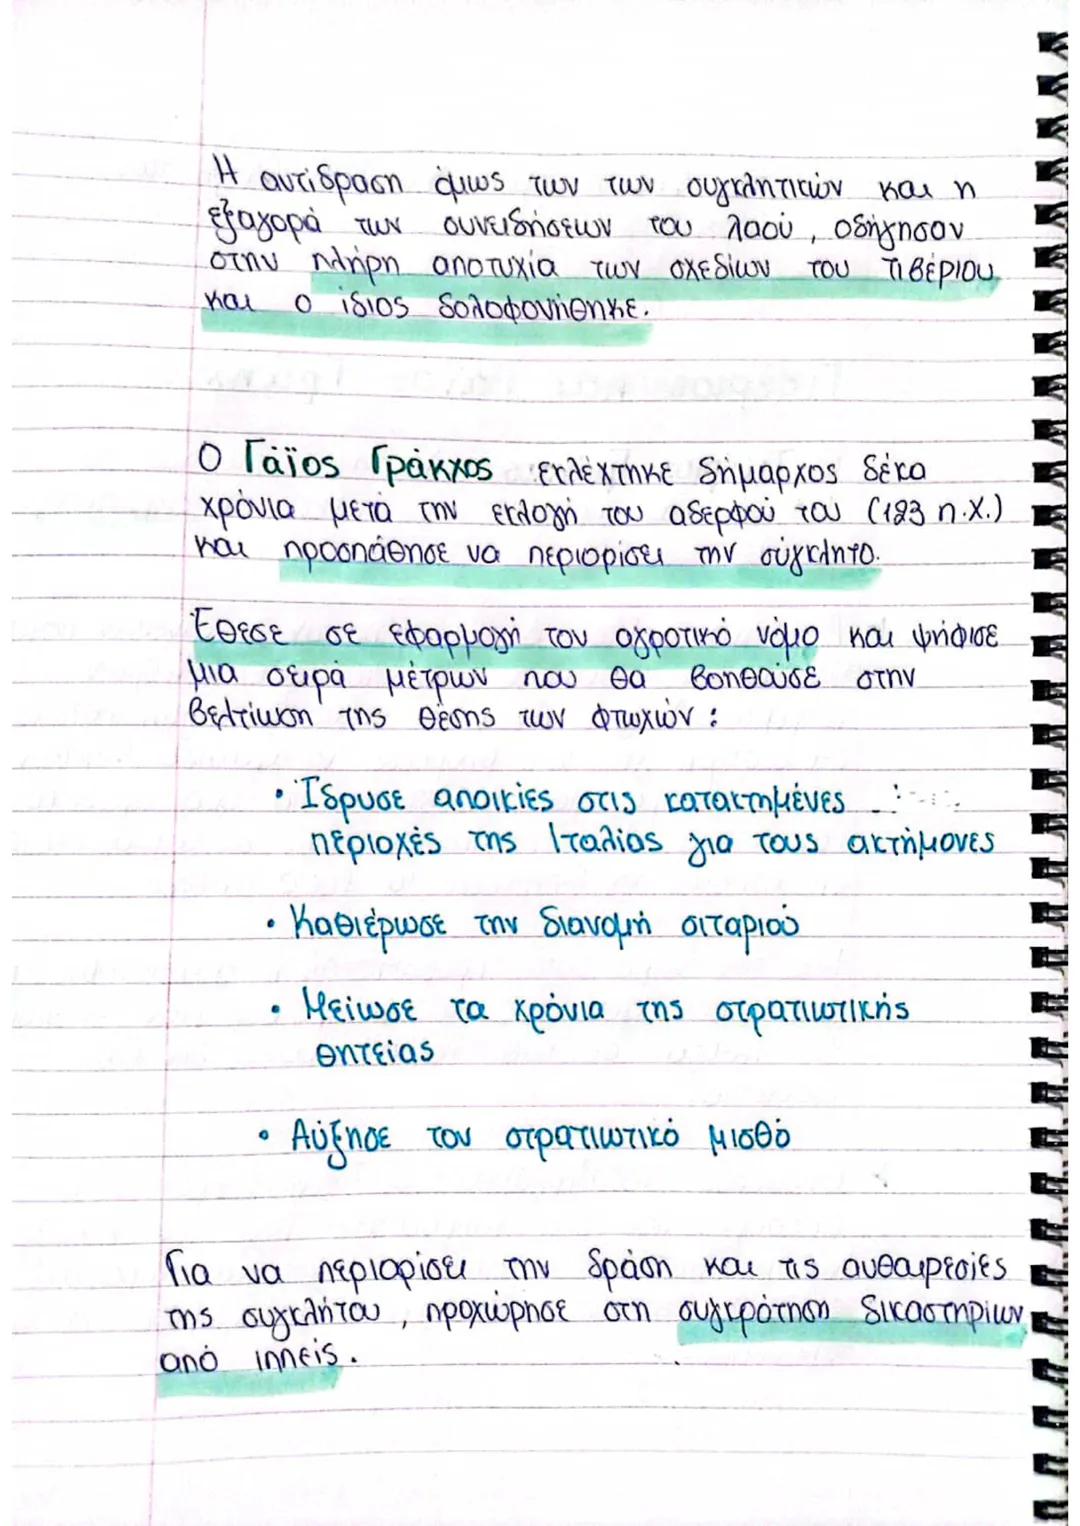 Η αντίδραση όμως των των συγκλητικών και η
εξαγορά των συνειδήσεων του λαού, οδήγησαν
στην πλήρη αποτυχία των σχεδίων του Τιβέριου
και ο ίδιος δολοφονήθηκε.
Ο Γάϊος Γράκχος εκλέχτηκε δήμαρχος δέκα
χρόνια μετά την εκλογή του αδερφού του (123 π.Χ.)
και προσπάθησε να περιορίσει την σύγκλητο.
Έθεσε σε εφαρμογή τον αγροτικό νόμο και ψήφισε
μια σειρά μέτρων που θα βοηθούσε στην
βελτίωση της θέσης των φτωχών :
• Ίδρυσε αποικίες στις κατακτημένες
περιοχές της Ιταλίας για τους ακτήμονες
• Καθιέρωσε την διανομή σιταριού
• Μείωσε τα χρόνια της στρατιωτικής
θητείας
• Αύξησε τον στρατιωτικό μισθό
Για να περιορίσει την δράση και τις αυθαιρεσίες
της συγκλήτου, προχώρησε στη συγκρότηση δικαστηρίων
από ιππείς.